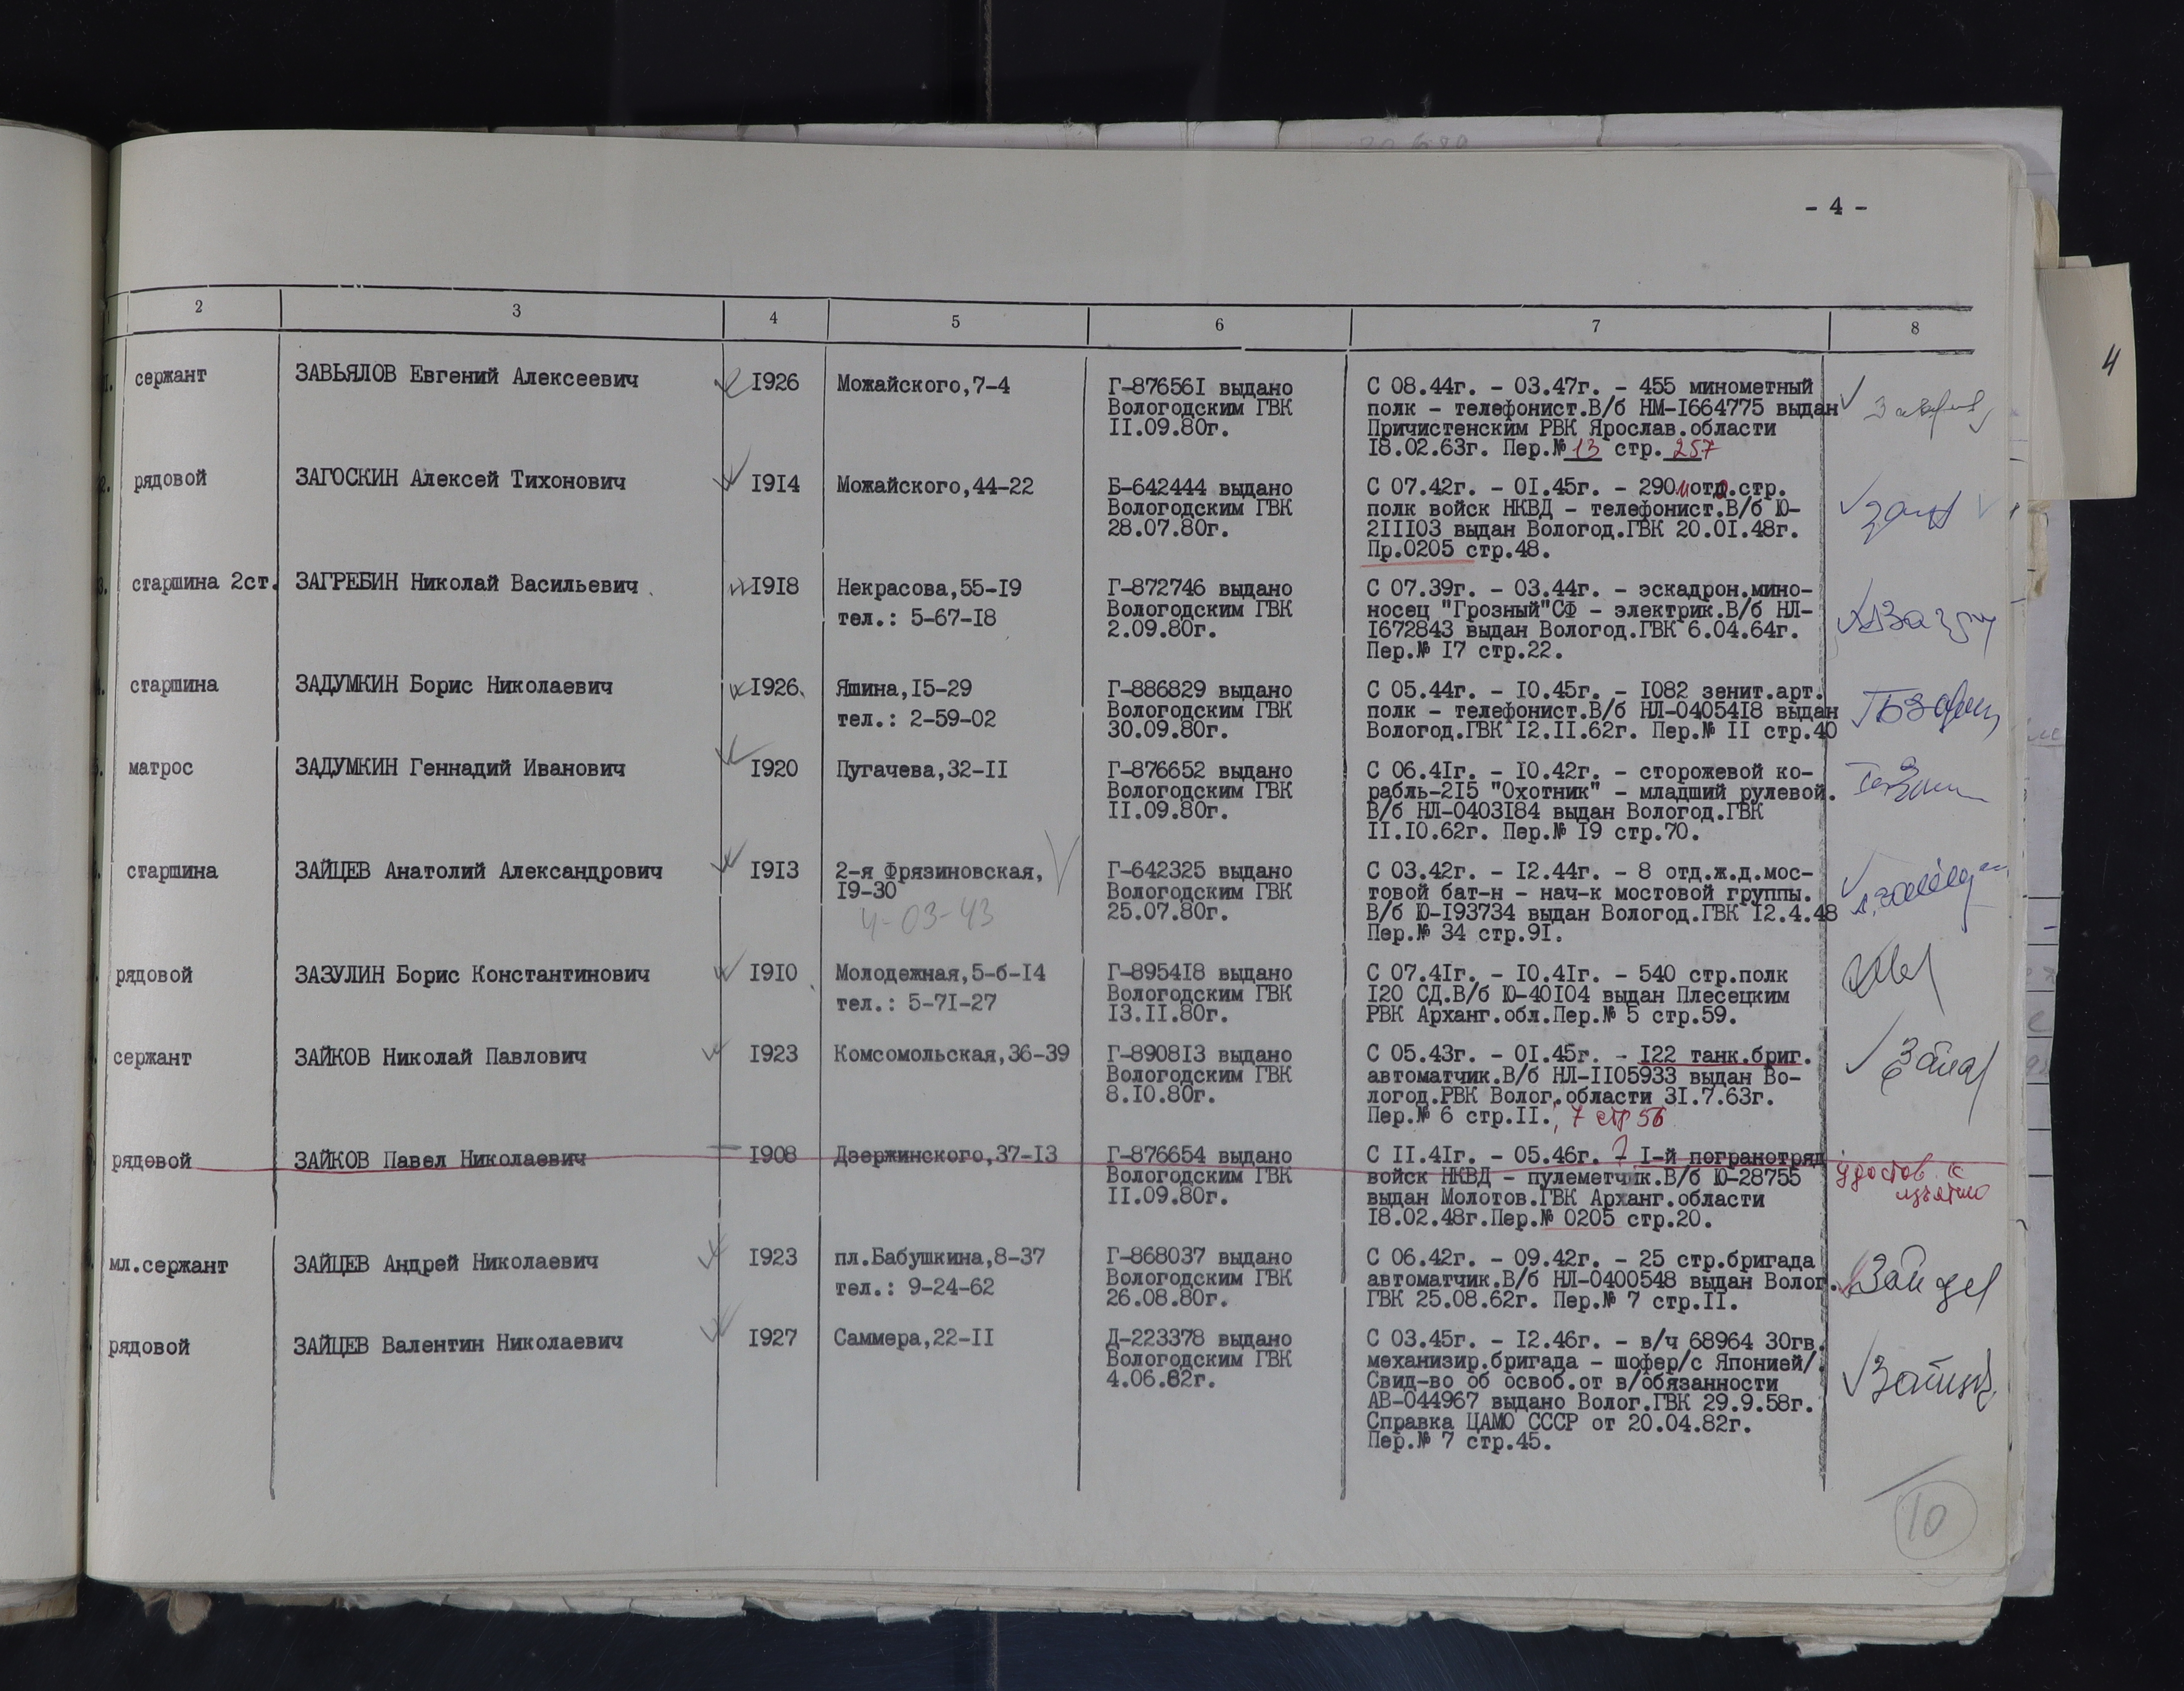 - 4 -
4
2 3 4 5 6 7 8
сержант ЗАВЬЯЛОВ Евгений Алексеевич 1926 Можайского,7-4 Г-876561 выдано С 08.44г. - 03.47г. - 455 минометный
Вологодским ГВК полк - телефонист.В/б НМ-1664775 выдан
11.09.80г. Причистенским РВК Ярослав.области
18.02.63г. Пер.№ 13 стр. 257
рядовой ЗАГОСКИН Алексей Тихонович 1914 Можайского,44-22 Б-642444 выдано С 07.42г. - 01.45г. - 290 отд.стр.
Вологодским ГВК полк войск НКВД - телефонист.В/б Ю-
28.07.80г. 211103 выдан Вологод.ГВК 20.01.48г.
Пр.0205 стр.48.
старшина 2ст. ЗАГРЕБИН Николай Васильевич 1918 Некрасова,55-19 Г-872746 выдано С 07.39г. - 03.44г. - эскадрон.мино-
тел.: 5-67-18 Вологодским ГВК носец "Грозный"СФ - электрик.В/б НЛ-
2.09.80г. 1672843 выдан Вологод.ГВК 6.04.64г.
Пер.№ 17 стр.22.
старшина ЗАДУМКИН Борис Николаевич 1926 Яшина,15-29 Г-886829 выдано С 05.44г. - 10.45г. - 1082 зенит.арт.
тел.: 2-59-02 Вологодским ГВК полк - телефонист.В/б НЛ-0405418 выдан
30.09.80г. Вологод.ГВК 12.11.62г. Пер.№ 11 стр.40
матрос ЗАДУМКИН Геннадий Иванович 1920 Пугачева,32-11 Г-876652 выдано С 06.41г. - 10.42г. - сторожевой ко-
Вологодским ГВК рабль-215 "Охотник" - младший рулевой.
11.09.80г. В/б НЛ-0403184 выдан Вологод.ГВК
11.10.62г. Пер.№ 19 стр.70.
старшина ЗАЙЦЕВ Анатолий Александрович 1913 2-я Фрязиновская, Г-642325 выдано С 03.42г. - 12.44г. - 8 отд.ж.д.мос-
19-30 Вологодским ГВК товой бат-н - нач-к мостовой группы.
4-03-43 25.07.80г. В/б Ю-193734 выдан Вологод.ГВК 12.4.48
Пер.№ 34 стр.91.
рядовой ЗАЗУЛИН Борис Константинович 1910 Молодежная,5-б-14 Г-895418 выдано С 07.41г. - 10.41г. - 540 стр.полк
тел.: 5-71-27 Вологодским ГВК 120 СД.В/б Ю-40104 выдан Плесецким
13.11.80г. РВК Арханг.обл.Пер.№ 5 стр.59.
сержант ЗАЙКОВ Николай Павлович 1923 Комсомольская,36-39 Г-890813 выдано С 05.43г. - 01.45г. - 122 танк.бриг.
Вологодским ГВК автоматчик.В/б НЛ-1105933 выдан Во-
8.10.80г. логод.РВК Волог.области 31.7.63г.
Пер.№ 6 стр.11.; 7 стр 56
рядовой ЗАЙКОВ Павел Николаевич 1908 Дзержинского,37-13 Г-876654 выдано С 11.41г. - 05.46г. - 1-й погранотряд
Вологодским ГВК войск НКВД - пулеметчик.В/б Ю-28755 удостов.
11.09.80г. выдан Молотов.ГВК Арханг.области изъято
18.02.48г.Пер.№ 0205 стр.20.
мл.сержант ЗАЙЦЕВ Андрей Николаевич 1923 пл.Бабушкина,8-37 Г-868037 выдано С 06.42г. - 09.42г. - 25 стр.бригада
тел.: 9-24-62 Вологодским ГВК автоматчик.В/б НЛ-0400548 выдан Волог.
26.08.80г. ГВК 25.08.62г. Пер.№ 7 стр.11.
рядовой ЗАЙЦЕВ Валентин Николаевич 1927 Саммера,22-11 Д-223378 выдано С 03.45г. - 12.46г. - в/ч 68964 30гв.
Вологодским ГВК механизир.бригада - шофер/с Японией/.
4.06.82г. Свид-во об освоб.от в/обязанности
АВ-044967 выдано Волог.ГВК 29.9.58г.
Справка ЦАМО СССР от 20.04.82г.
Пер.№ 7 стр.45.
10